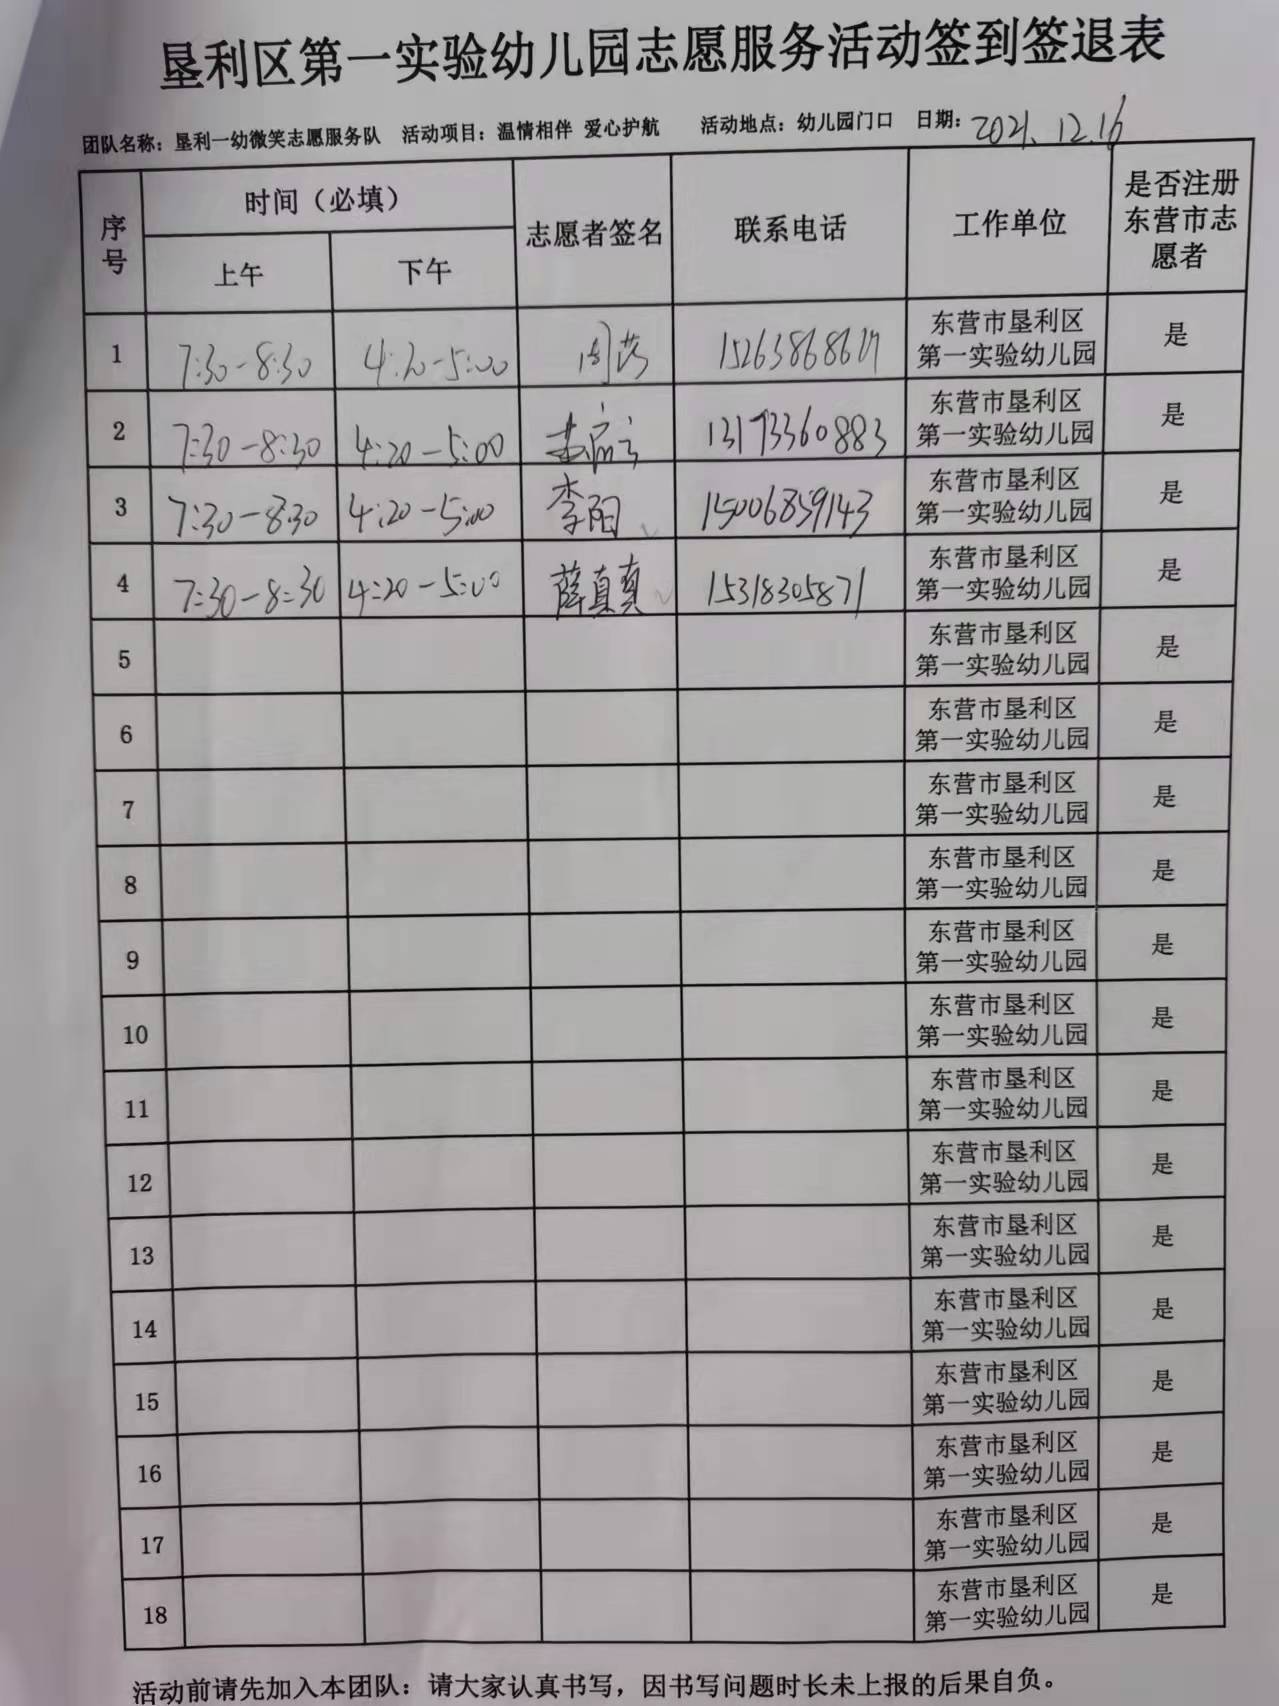 垦利区第一实验幼儿园志愿服务活动签到签退表
团队名称：垦利一幼微笑志愿服务队 活动项目：温情相伴 爱心护航 活动地点：幼儿园门口 日期：2021.12.16
序号 时间（必填） 志愿者签名 联系电话 工作单位 是否注册东营市志愿者
上午 下午
1 7:30-8:30 4:20-5:00 周 东营市垦利区第一实验幼儿园 是
2 7:30-8:30 4:20-5:00 13173360883 东营市垦利区第一实验幼儿园 是
3 7:30-8:30 4:20-5:00 李阳 15006859143 东营市垦利区第一实验幼儿园 是
4 7:30-8:30 4:20-5:00 薛真真 15318305871 东营市垦利区第一实验幼儿园 是
5 东营市垦利区第一实验幼儿园 是
6 东营市垦利区第一实验幼儿园 是
7 东营市垦利区第一实验幼儿园 是
8 东营市垦利区第一实验幼儿园 是
9 东营市垦利区第一实验幼儿园 是
10 东营市垦利区第一实验幼儿园 是
11 东营市垦利区第一实验幼儿园 是
12 东营市垦利区第一实验幼儿园 是
13 东营市垦利区第一实验幼儿园 是
14 东营市垦利区第一实验幼儿园 是
15 东营市垦利区第一实验幼儿园 是
16 东营市垦利区第一实验幼儿园 是
17 东营市垦利区第一实验幼儿园 是
18 东营市垦利区第一实验幼儿园 是
活动前请先加入本团队：请大家认真书写，因书写问题时长未上报的后果自负。